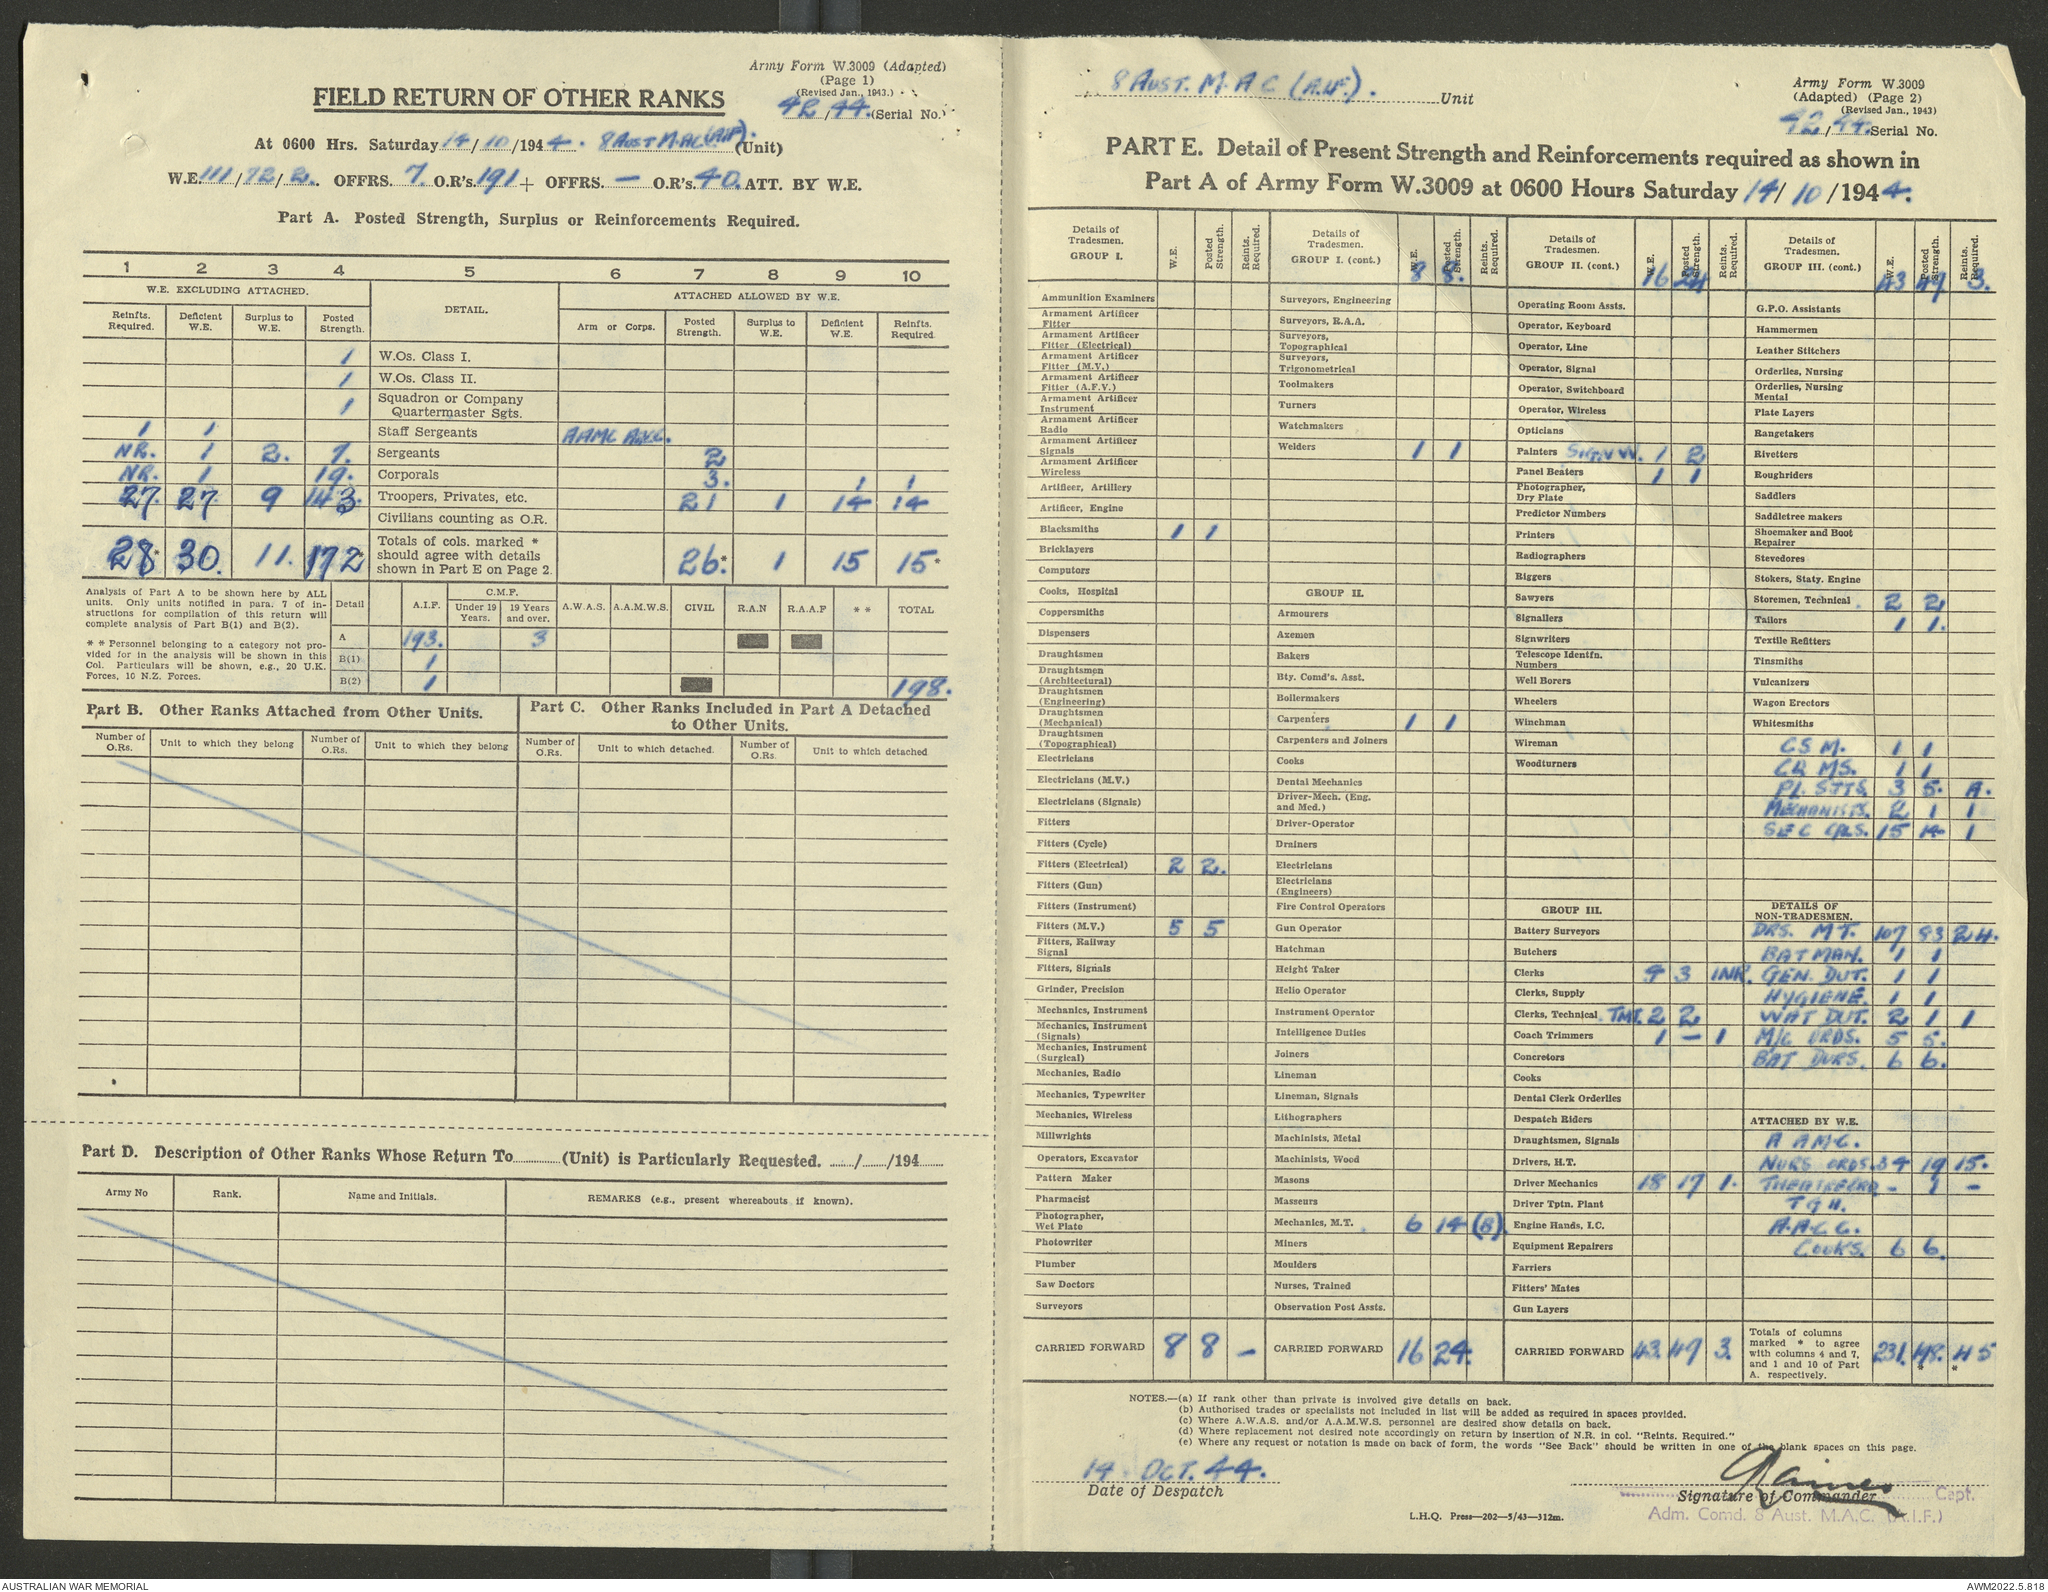 Army Form W.3009 (Adapted)
(Page 1)
(Revised Jan., 1943.)
FIELD RETURN OF OTHER RANKS
42/44. (Serial No.)
At 0600 Hrs. Saturday 14/10/1944. 8 AUST M.AC (AIF). (Unit)
W.E. 111/72/2. OFFRS. 7. O.R's. 191 + OFFRS. — O.R's. 40. ATT. BY W.E.
Part A. Posted Strength, Surplus or Reinforcements Required.
1 2 3 4 5 6 7 8 9 10
W.E. EXCLUDING ATTACHED. DETAIL. ATTACHED ALLOWED BY W.E.
Reinfts. Required. Deficient W.E. Surplus to W.E. Posted Strength. Arm or Corps. Posted Strength. Surplus to W.E. Deficient W.E. Reinfts. Required.
1 W.Os. Class I.
1 W.Os. Class II.
1 Squadron or Company Quartermaster Sgts.
1 1 Staff Sergeants AAMC
NR. 1 2. 7. Sergeants 2
NR. 1 19. Corporals 3. 1 1
27. 27 9 143. Troopers, Privates, etc. 21 1 14 14
Civilians counting as O.R.
28* 30. 11. 172* Totals of cols. marked * should agree with details shown in Part E on Page 2. 26.* 1 15 15*
Analysis of Part A to be shown here by ALL units. Only units notified in para. 7 of instructions for compilation of this return will complete analysis of Part B(1) and B(2).
* * Personnel belonging to a category not provided for in the analysis will be shown in this Col. Particulars will be shown, e.g., 20 U.K. Forces, 10 N.Z. Forces.
Detail A.I.F. C.M.F. Under 19 Years. 19 Years and over. A.W.A.S. A.A.M.W.S. CIVIL R.A.N R.A.A.F * * TOTAL
A 193. 3
B(1) 1
B(2) 1 198.
Part B. Other Ranks Attached from Other Units.
Number of O.Rs. Unit to which they belong Number of O.Rs. Unit to which they belong
Part C. Other Ranks Included in Part A Detached to Other Units.
Number of O.Rs. Unit to which detached. Number of O.Rs. Unit to which detached
Part D. Description of Other Ranks Whose Return To............(Unit) is Particularly Requested. ....../....../194......
Army No Rank. Name and Initials. REMARKS (e.g., present whereabouts if known).
8 AUST. M.A C (A.I.F.). Unit
Army Form W.3009
(Adapted) (Page 2)
(Revised Jan., 1943)
42/44. Serial No.
PART E. Detail of Present Strength and Reinforcements required as shown in
Part A of Army Form W.3009 at 0600 Hours Saturday 14/10/1944.
Details of Tradesmen. GROUP I. W.E. Posted Strength. Reinfts. Required.
Ammunition Examiners
Armament Artificer Fitter
Armament Artificer Fitter (Electrical)
Armament Artificer Fitter (M.V.)
Armament Artificer Fitter (A.F.V.)
Armament Artificer Instrument
Armament Artificer Radio
Armament Artificer Signals
Armament Artificer Wireless
Artificer, Artillery
Artificer, Engine
Blacksmiths 1 1
Bricklayers
Computors
Cooks, Hospital
Coppersmiths
Dispensers
Draughtsmen
Draughtsmen (Architectural)
Draughtsmen (Engineering)
Draughtsmen (Mechanical)
Draughtsmen (Topographical)
Electricians
Electricians (M.V.)
Electricians (Signals)
Fitters
Fitters (Cycle)
Fitters (Electrical) 2 2.
Fitters (Gun)
Fitters (Instrument)
Fitters (M.V.) 5 5
Fitters, Railway Signal
Fitters, Signals
Grinder, Precision
Mechanics, Instrument
Mechanics, Instrument (Signals)
Mechanics, Instrument (Surgical)
Mechanics, Radio
Mechanics, Typewriter
Mechanics, Wireless
Millwrights
Operators, Excavator
Pattern Maker
Pharmacist
Photographer, Wet Plate
Photowriter
Plumber
Saw Doctors
Surveyors
CARRIED FORWARD 8 8 —
Details of Tradesmen. GROUP I. (cont.) W.E. Posted Strength. Reints. Required.
8 8.
Surveyors, Engineering
Surveyors, R.A.A.
Surveyors, Topographical
Surveyors, Trigonometrical
Toolmakers
Turners
Watchmakers
Welders 1 1
GROUP II.
Armourers
Axemen
Bakers
Bty. Comd's. Asst.
Boilermakers
Carpenters 1 1
Carpenters and Joiners
Cooks
Dental Mechanics
Driver-Mech. (Eng. and Med.)
Driver-Operator
Drainers
Electricians
Electricians (Engineers)
Fire Control Operators
Gun Operator
Hatchman
Height Taker
Helio Operator
Instrument Operator
Intelligence Duties
Joiners
Lineman
Lineman, Signals
Lithographers
Machinists, Metal
Machinists, Wood
Masons
Masseurs
Mechanics, M.T. 6 14 (8).
Miners
Moulders
Nurses, Trained
Observation Post Assts.
CARRIED FORWARD 16 24.
Details of Tradesmen. GROUP II. (cont.) W.E. Posted Strength. Reints. Required.
16 24
Operating Room Assts.
Operator, Keyboard
Operator, Line
Operator, Signal
Operator, Switchboard
Operator, Wireless
Opticians
Painters 1 2
Panel Beaters 1 1
Photographer, Dry Plate
Predictor Numbers
Printers
Radiographers
Riggers
Sawyers
Signallers
Signwriters
Telescope Identfn. Numbers
Well Borers
Wheelers
Winchman
Wireman
Woodturners
GROUP III.
Battery Surveyors
Butchers
Clerks 4 3 1NR.
Clerks, Supply
Clerks, Technical. TMT. 2 2
Coach Trimmers 1 — 1
Concretors
Cooks
Dental Clerk Orderlies
Despatch Riders
Draughtsmen, Signals
Drivers, H.T.
Driver Mechanics 18 17 1.
Driver Tptn. Plant
Engine Hands, I.C.
Equipment Repairers
Farriers
Fitters' Mates
Gun Layers
CARRIED FORWARD 43. 49 3.
Details of Tradesmen. GROUP III. (cont.) W.E. Posted Strength. Reints. Required.
43 49 3.
G.P.O. Assistants
Hammermen
Leather Stitchers
Orderlies, Nursing
Orderlies, Nursing Mental
Plate Layers
Rangetakers
Rivetters
Roughriders
Saddlers
Saddletree makers
Shoemaker and Boot Repairer
Stevedores
Stokers, Staty. Engine
Storemen, Technical 2 2
Tailors 1 1.
Textile Refitters
Tinsmiths
Vulcanizers
Wagon Erectors
Whitesmiths
CSM. 1 1
CQMS. 1 1
PL. SGTS. 3 5.
MECHANISTS. 2 1 1
SEC CPLS. 15 14. 1
DETAILS OF NON-TRADESMEN.
DRS. MT. 107 83 24.
BATMAN. 1 1
GEN. DUT. 1 1
HYGIENE. 1 1
WAT DUT. 2 1 1
M/C ORDS. 5 5.
BAT DVRS. 6 6.
ATTACHED BY W.E.
A AMC.
NURS ORDS. 34 19 15.
THEATRE ORD. — 1 —
TGH.
A.A.C.C.
COOKS. 6 6.
Totals of columns marked * to agree with columns 4 and 7, and 1 and 10 of Part A. respectively. 231. 198.* *45
NOTES.—(a) If rank other than private is involved give details on back.
(b) Authorised trades or specialists not included in list will be added as required in spaces provided.
(c) Where A.W.A.S. and/or A.A.M.W.S. personnel are desired show details on back.
(d) Where replacement not desired note accordingly on return by insertion of N.R. in col. "Reints. Required."
(e) Where any request or notation is made on back of form, the words "See Back" should be written in one of the blank spaces on this page.
14 OCT. 44.
Date of Despatch
Signature of Commander
Capt.
Adm. Comd. 8 Aust. M.A.C. (A.I.F.)
L.H.Q. Press—202—5/43—312m.
AUSTRALIAN WAR MEMORIAL
AWM2022.5.818